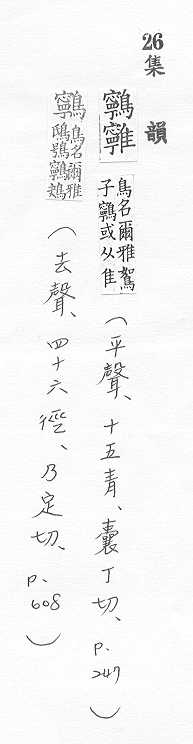 26
集韻
鸋
鳥名爾雅鴽
子鸋或从隹
（平聲、十五青、囊丁切、p.247）
鸋
鳥名爾雅
鴟鴞鸋鴂
（去聲、四十六徑、乃定切、p.608）